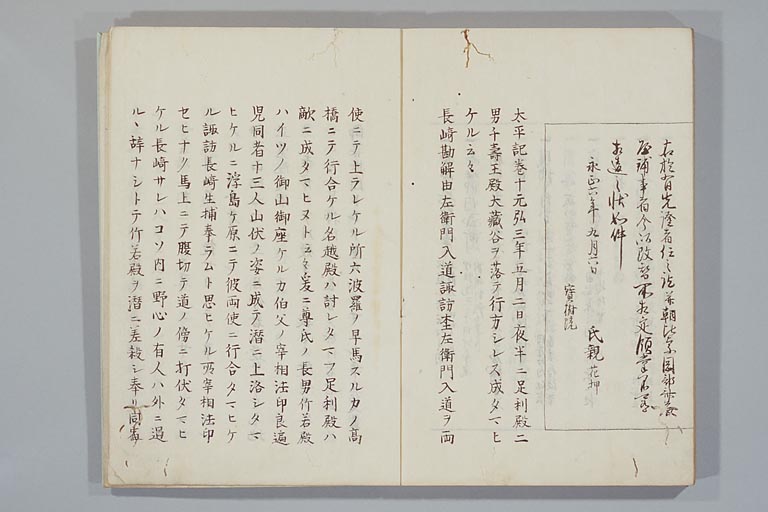 右於有先證者任之
永正六年九月二日
氏親 花押
寶樹院
太平記巻十元弘三年五月二日夜半ニ足利殿二
男千壽王殿大藏谷ヲ落テ行方シレス成タマヒ
ケル云々
長﨑勘解由左衛門入道諏訪木工左衛門入道ヲ両
使ニテ上ラレケル所六波羅ノ早馬スルカノ高
橋ニテ行合ケル名越殿ハ討レタマフ足利殿ハ
敵ニ成タマヒヌト云々爰ニ尊氏ノ長男竹若殿
ハイツノ御山御座ケルカ伯父ノ宰相法印良遍
児同者十三人山伏ノ姿ニ成テ潜ニ上洛シタマ
ヒケルニ浮島ケ原ニテ彼両使ニ行合タマヒケ
ル諏訪長﨑生捕奉ラムト思ヒケル所宰相法印
セヒナク馬上ニテ腹切テ道ノ傍ニ打伏タマヒ
ケル長﨑サレハコソ内ニ野心ノ有人ハ外ニ遁
ルヽ辞ナシトテ竹若殿ヲ潜ニ差殺シ奉リ同